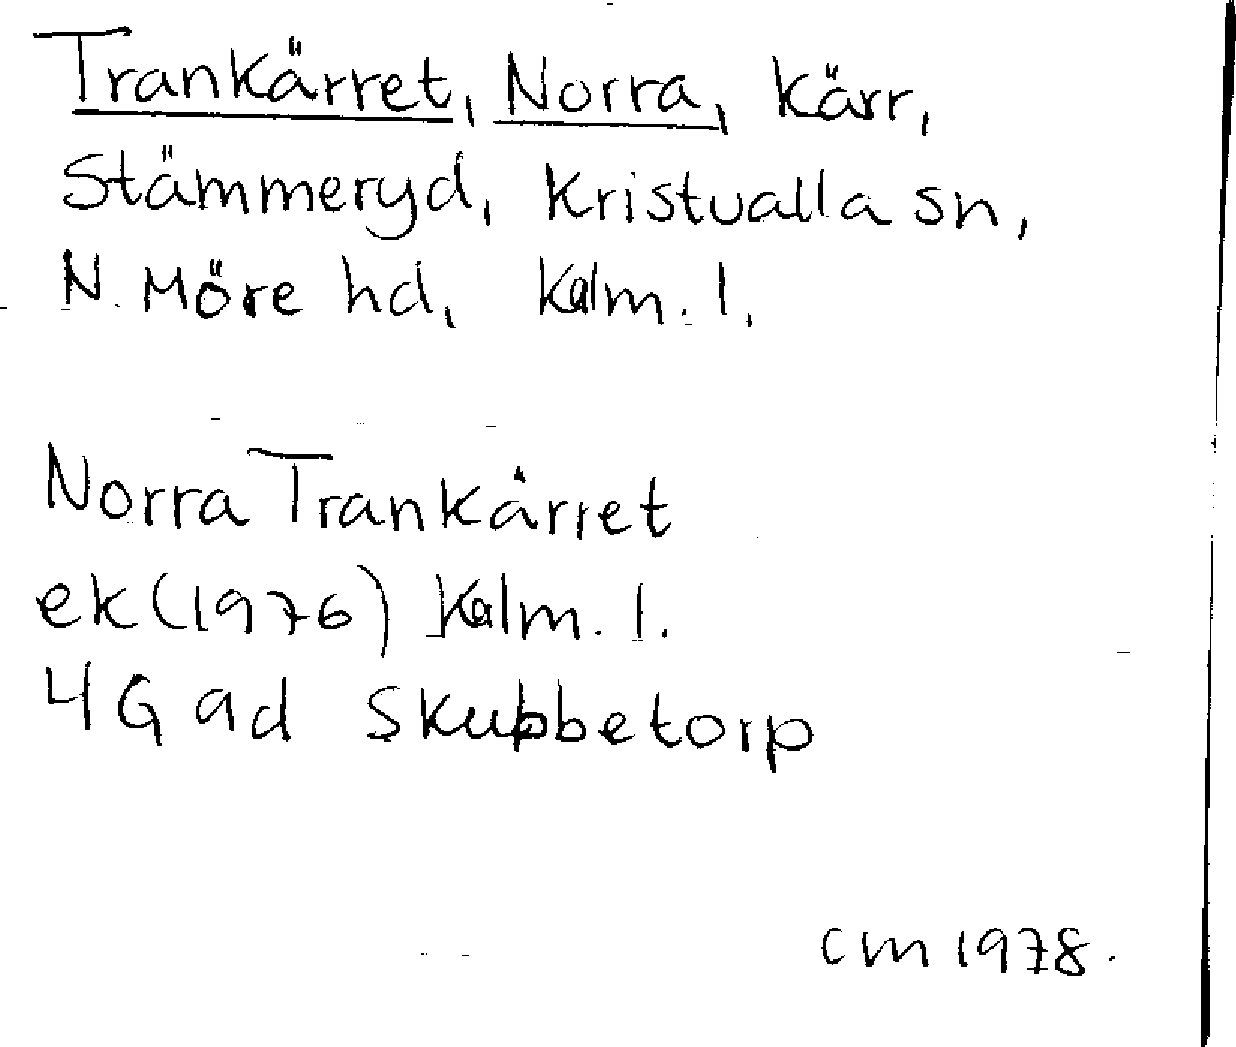 Trankärret, Norra, kärr,
Stämmeryd, Kristvalla sn,
N. Möre hd, Kalm. l.
Norra Trankärret
ek (1976) Kalm. l.
4G ad Skubbetorp
CM 1978.